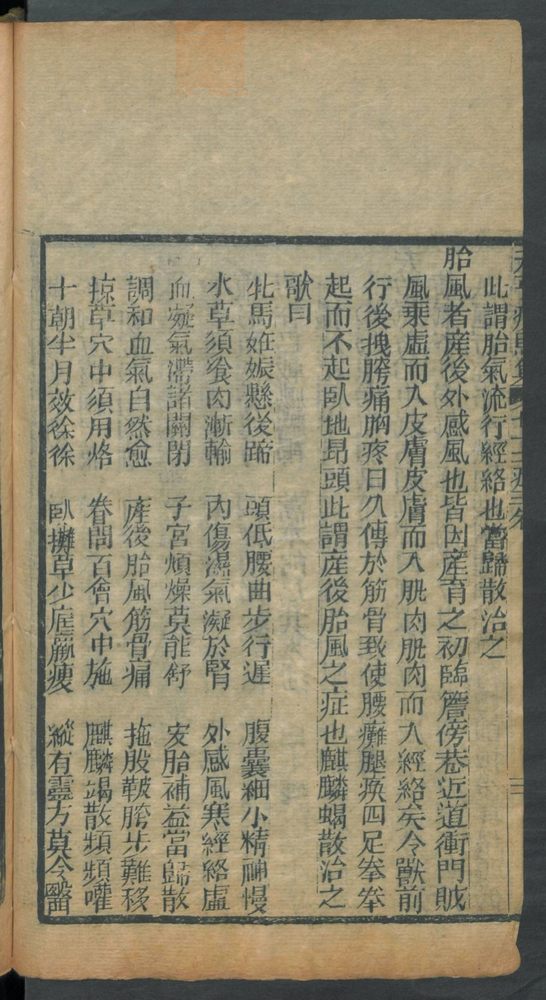 此謂胎氣流行經絡也當歸散治之
胎風者產後外感風也皆因產育之初臨簷傍巷近道衝門賊
風乘虛而入皮膚皮膚而入肌肉肌肉而入經絡矣令獸前
行後拽胯痛胸疼日久傳於筋骨致使腰癱腿瘓四足拳攣
起而不起臥地昂頭此謂產後胎風之症也麒麟蝎散治之
歌曰
牝馬姙娠懸後蹄 頭低腰曲步行遲 腹囊細小精神慢
水草須飡肉漸輸 內傷濕氣凝於腎 外感風寒經絡虛
血凝氣滯諸關閉 子宮煩燥莫能舒 安胎補益當歸散
調和血氣自然愈 產後胎風筋骨痛 拖股鞁胯步難移
掠草穴中須用烙 眷間百會穴中施 麒麟竭散頻頻嚾
十朝半月效徐徐 臥攤草少尫羸瘦 縱有靈方莫令醫